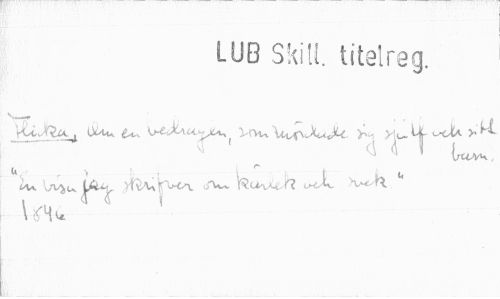 LUB Skill. titelreg.
Flicka, Om en bedragen, som mördade sig sjelf och sitt
barn.
"En visa jag skrifver om kärlek och svek."
1846